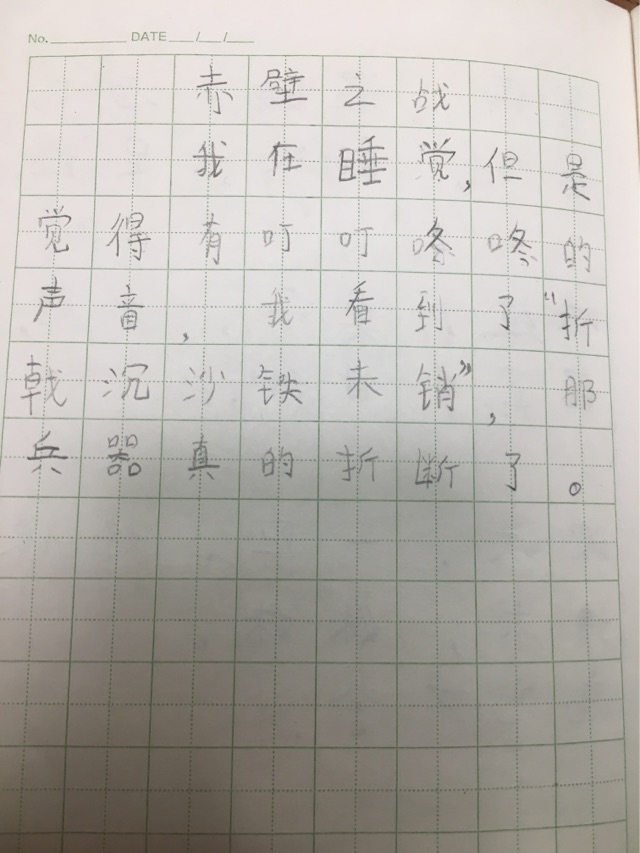 No. DATE / /
赤壁之战
我在睡觉,但是
觉得有叮叮咚咚的
声音,我看到了“折
戟沉沙铁未销”,那
兵器真的折断了。